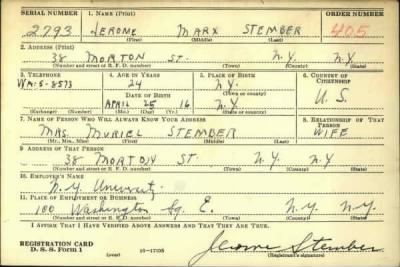 SERIAL NUMBER 1. NAME (Print) ORDER NUMBER
2793 JEROME MARX STEMBER 405
(First) (Middle) (Last)
2. ADDRESS (Print)
38 MORTON ST. N.Y. N.Y
(Number and street or R. F. D. number) (Town) (County) (State)
3. TELEPHONE 4. AGE IN YEARS 5. PLACE OF BIRTH 6. COUNTRY OF CITIZENSHIP
24 N.Y.
WA-5-8573 DATE OF BIRTH (Town or county) U.S.
APRIL 25 16 N.Y.
(Exchange) (Number) (Mo.) (Day) (Yr.) (State or country)
7. NAME OF PERSON WHO WILL ALWAYS KNOW YOUR ADDRESS 8. RELATIONSHIP OF THAT PERSON
MRS. MURIEL STEMBER WIFE
(Mr., Mrs., Miss) (First) (Middle) (Last)
9. ADDRESS OF THAT PERSON
38 MORTON ST. N.Y. N.Y.
(Number and street or R. F. D. number) (Town) (County) (State)
10. EMPLOYER'S NAME
N.Y. University
11. PLACE OF EMPLOYMENT OR BUSINESS
100 Washington Sq. E. N.Y. N.Y.
(Number and street or R. F. D. number) (Town) (County) (State)
I AFFIRM THAT I HAVE VERIFIED ABOVE ANSWERS AND THAT THEY ARE TRUE.
REGISTRATION CARD
D. S. S. Form 1 (over) 16-17105 Jerome Stember
(Registrant's signature)